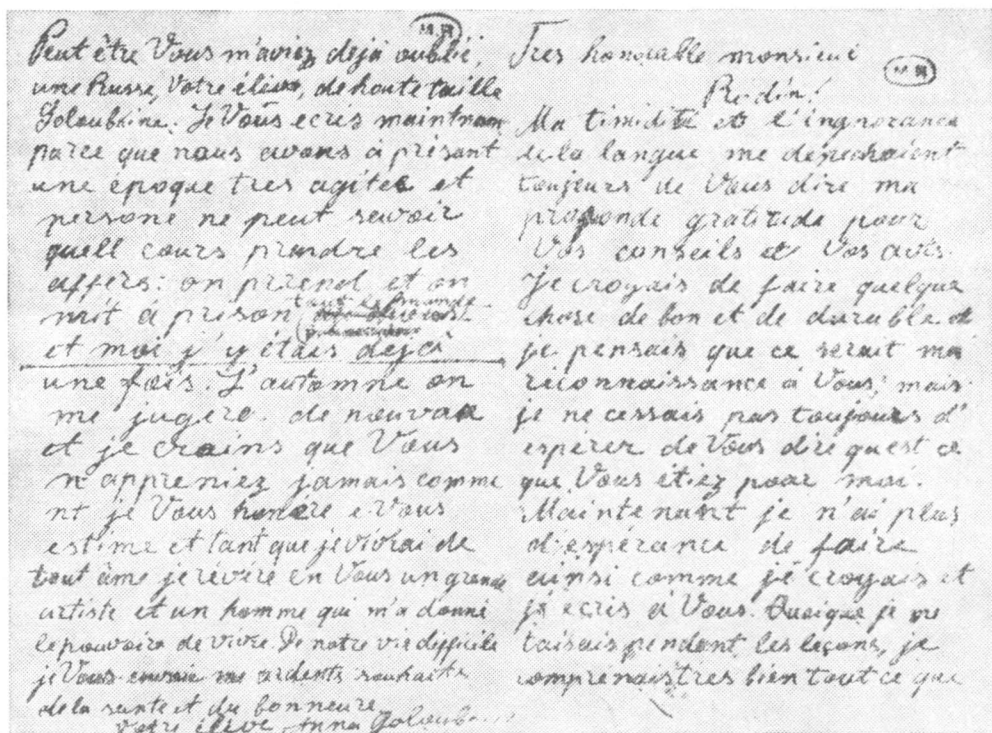 M R
Peut être Vous m'aviez deja oublié,
une Russe, Votre élève, de haute taille
Goloubkine. Je Vous ecris maintnam
parce que nous avons à présent
une époque tres agitée et
persone ne peut sevoir
quell cours prendre les
affers: on prend et on
mit à prison tout le monde
et moi j'y étais deja
une fois. L'automne on
me jugera de nouvau
et je crains que Vous
n'appreniez jamais comme
nt je Vous honore e Vous
estime et tant que je vivrai de
tout âme je révère en Vous un grand
artiste et un homme qui m'a donné
le pouvoire de vivre. De notre vie difficile
je Vous envoie me ardents souhaits
de la sante et du bonneure
Votre élève Anna Goloubkine
Tres honorable monsieur
M R
Rodin!
Ma timidité et l'ingnorance
de la langue me dépechaient
toujeurs de Vous dire ma
profonde gratitude pour
Vos conseils et Vos avis.
Je croyais de faire quelque
chose de bon et de durable et
je pensais que ce serait ma
riconnaissance à Vous; mais
je ne cessais pas toujours d'
espérer de Vous dire quest ce
que Vous étiez pour moi.
Maintenant je n'ai plus
d'espérance de faire
ainsi comme je croyais et
j'ecris à Vous. Quoique je me
taisais pendent les leçons, je
comprenais tres bien tout ce que